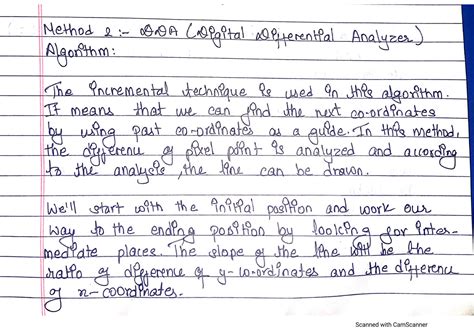 Method 2:- DDA (Digital Differential Analyzer)
Algorithm:
The incremental technique is used in this algorithm.
It means that we can find the next co-ordinates
by using past co-ordinates as a guide. In this method,
the difference of pixel point is analyzed and according
to the analysis, the line can be drawn.
We'll start with the initial position and work our
way to the ending position by looking for inter-
mediate places. The slope of the line will be the
ratio of difference of y-co-ordinates and the difference
of x-coordinates.
Scanned with CamScanner